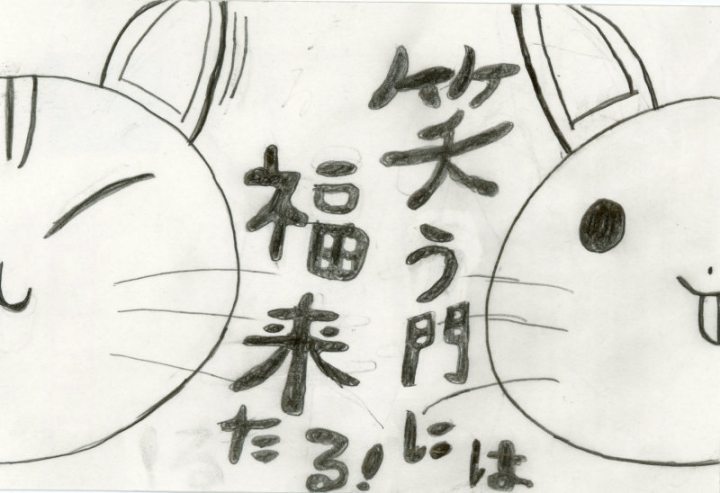 笑う門には
福来たる!